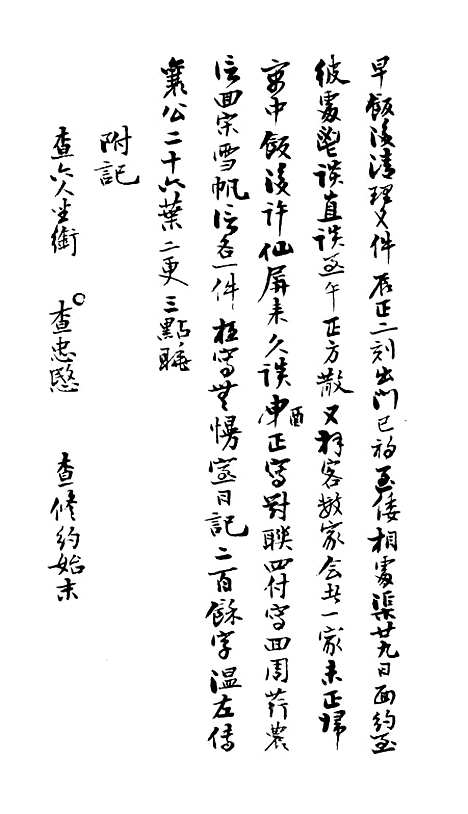 早飯後清理文件辰正二刻出門巳初至倭相處渠廿九日面約至
彼處鬯談直談至午正方散又拜客數家會者一家未正歸
寓中飯後許仙屏來久談申正酉寫對聯四付寫回周荇農
信回宋雪帆信各一件在寓無慢室日記二百餘字溫左傳
襄公二十六葉二更三點睡
附記
查六人坐銜 查忠愍 查修約始末